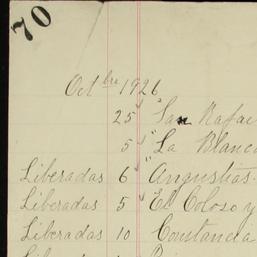 70
Octbre 1926
25 "San Rafae
5 "La Blanca
Liberadas 6 "Angustias
Liberadas 5 El Coloso y
Liberadas 10 Constancia